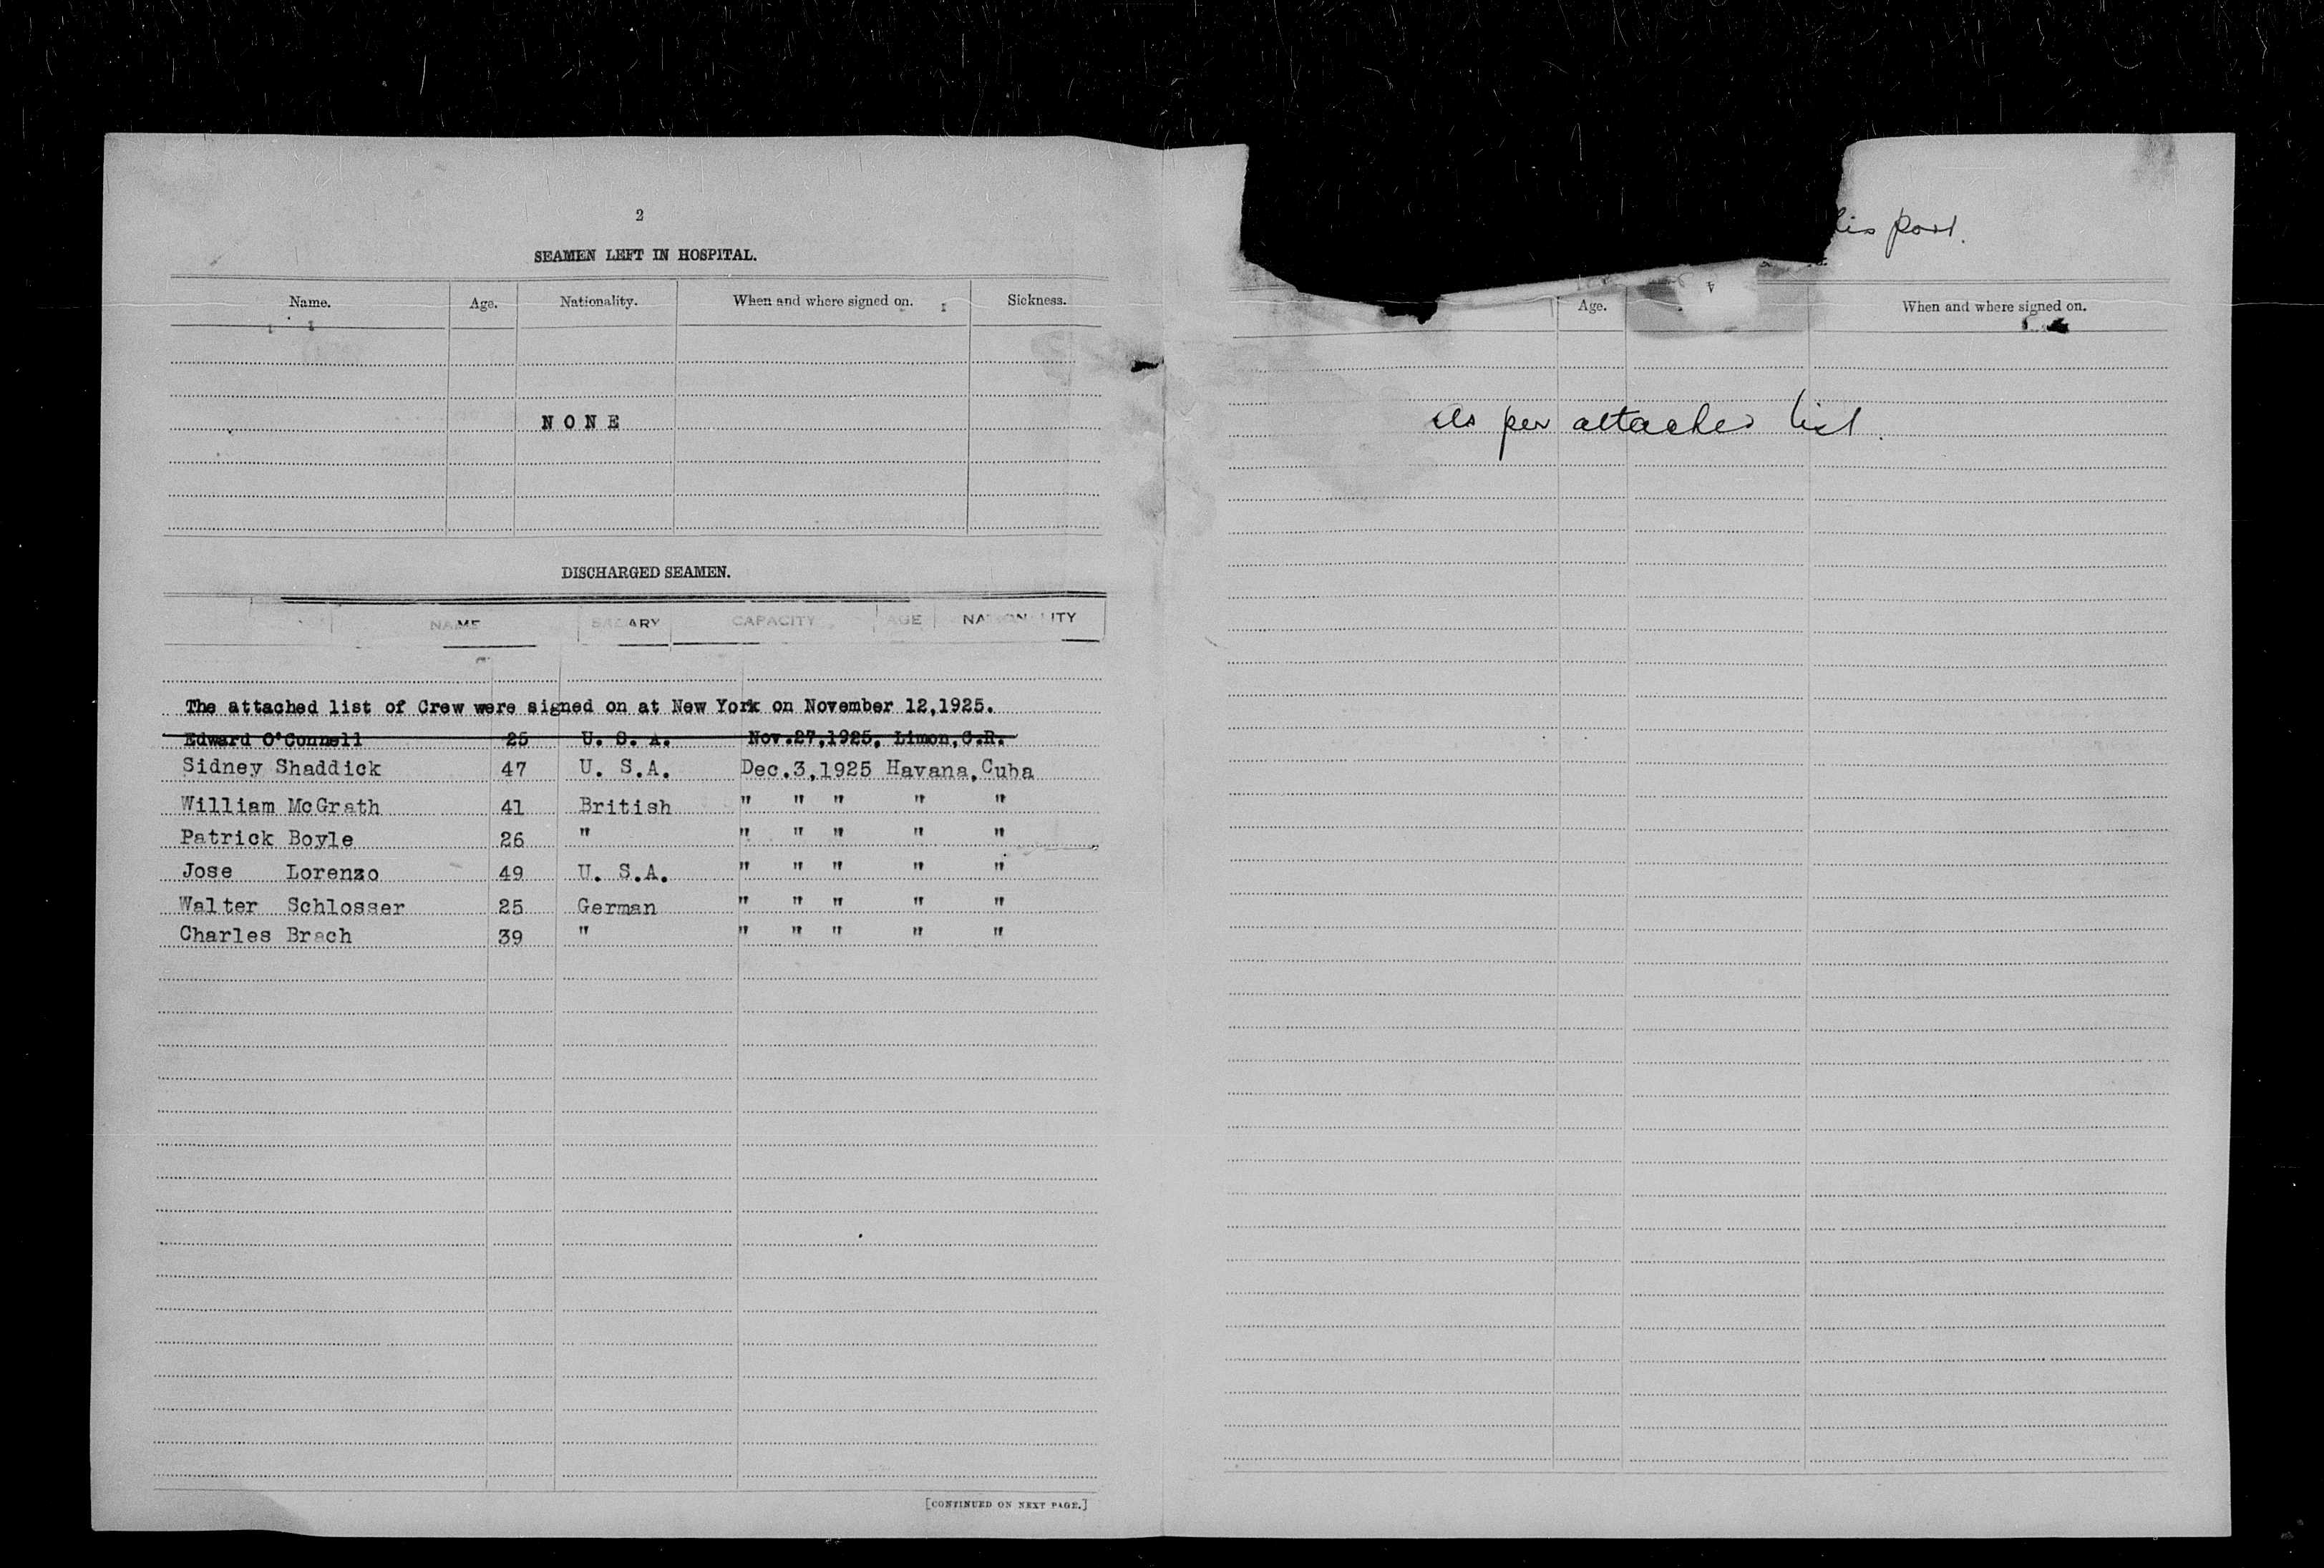 2
SEAMEN LEFT IN HOSPITAL.
Name. Age. Nationality. When and where signed on. Sickness.
NONE
DISCHARGED SEAMEN.
NAME SALARY CAPACITY AGE NATIONALITY
The attached list of Crew were signed on at New York on November 12,1925.
Edward O'Connell 25 U. S. A. Nov.27,1925, Limon,C.R.
Sidney Shaddick 47 U. S.A. Dec.3,1925 Havana,Cuba
William McGrath 41 British " " " " "
Patrick Boyle 26 " " " " " "
Jose Lorenzo 49 U. S.A. " " " " "
Walter Schlosser 25 German " " " " "
Charles Brach 39 " " " " " "
[CONTINUED ON NEXT PAGE.]
his port.
Age. When and where signed on.
As per attached list.